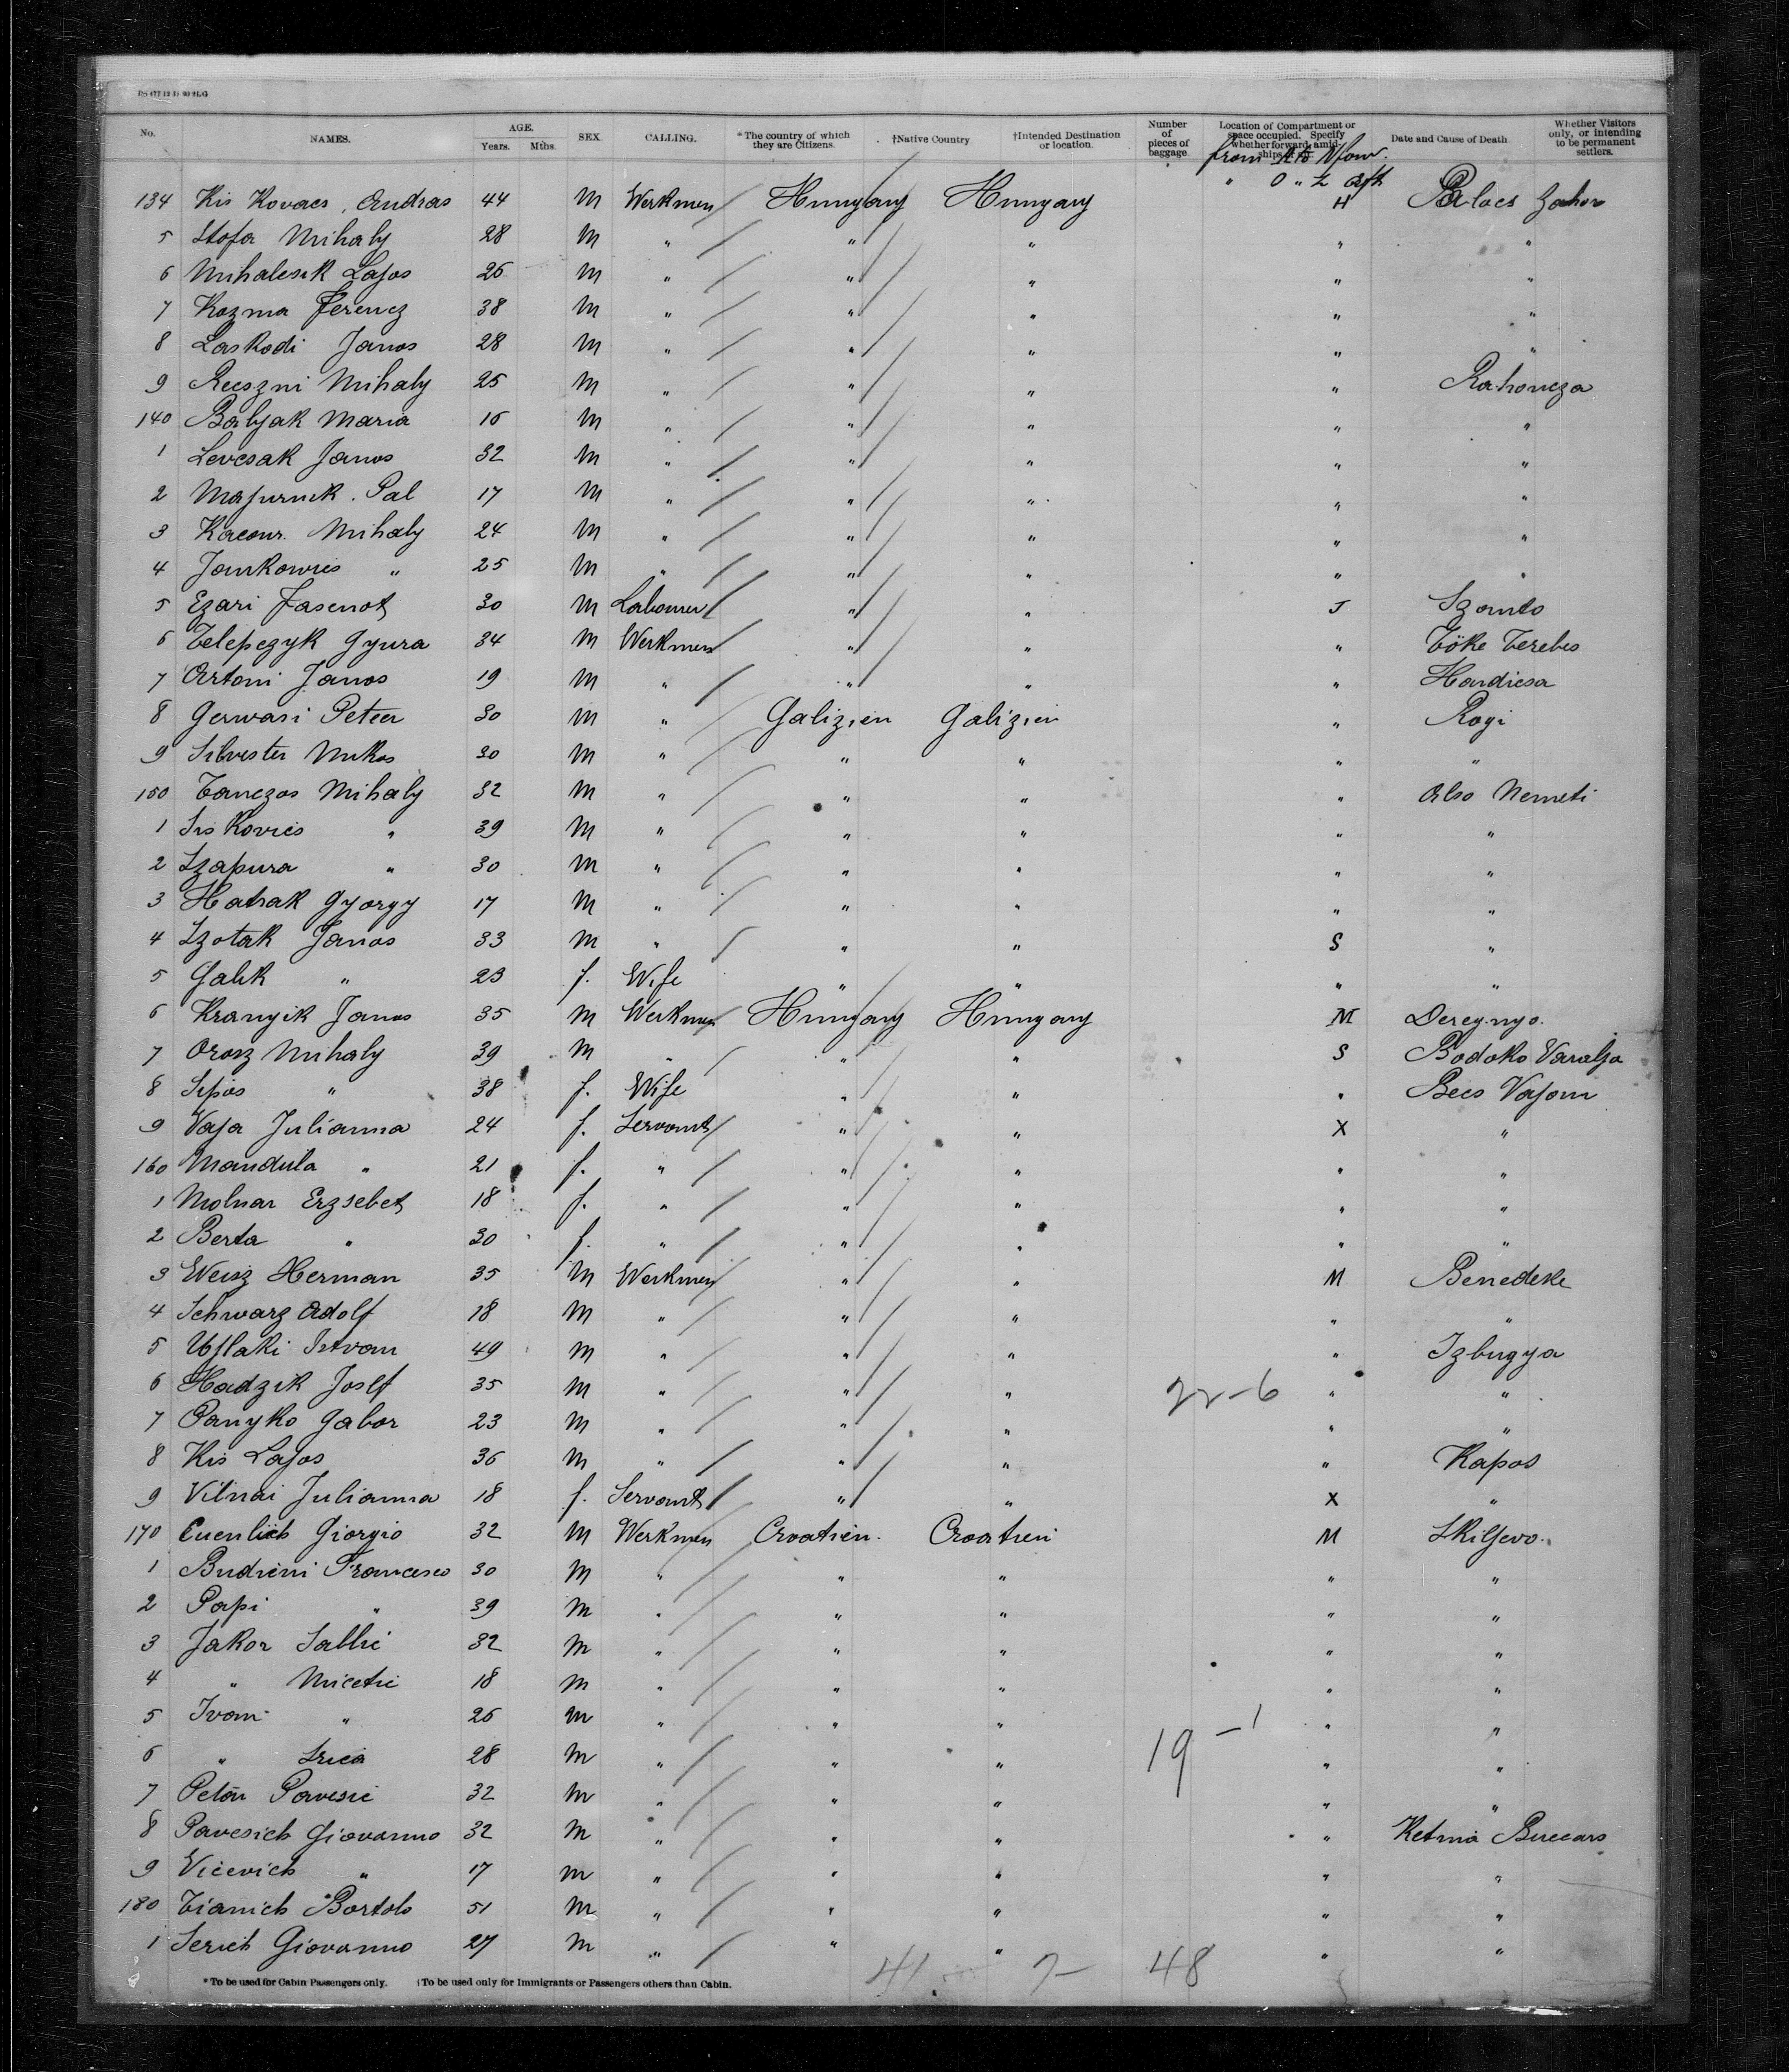 No. NAMES. AGE. Years. Mths. SEX. CALLING. *The country of which they are Citizens. †Native Country †Intended Destination or location. Number of pieces of baggage Location of Compartment or space occupied. Specify whether forward, amidships Date and Cause of Death Whether Visitors only, or intending to be permanent settlers.
from A to N forw.
" O " Z aft
134 Kis Kovacs, Andras 44 M Werkmen Hungary Hungary H Palocs
5 Stofa Mihaly 28 M " " " " "
6 Mihalcsik Lajos 26 M " " " " "
7 Kozma Ferencz 38 M " " " " "
8 Laskodi Janos 28 M " " " " "
9 Mihaly 25 M " " " " Rahoncza
140 Balyak Maria 16 M " " " " "
1 Levcsak Janos 32 M " " " " "
2 Majurnik. Pal 17 M " " " " "
3 Mihaly 24 M " " " " "
4 Jankowics " 25 M " " " " "
5 Ezari 30 M Labourer " " J Szanto
6 Telepczyk Gyura 34 M Werkmen " " " Töke Terebes
7 Artoni Janos 19 M " " " " Hardicsa
8 Gerwasi Peter 30 M " Galizien Galizien " Rogi
9 Silvester Mikos 30 M " " " " "
150 Tanczos Mihaly 32 M " " " " Also Nemeti
1 Siskovics " 39 M " " " " "
2 Szapura " 30 M " " " " "
3 Hatrak Gyorgy 17 M " " " " "
4 Szotak Janos 33 M " " " S "
5 Galik " 23 f. Wife " " " "
6 Kranyik Janos 35 M Werkmen Hungary Hungary M Deregnyo.
7 Orosz Mihaly 39 M " " " S Bodoko Varalja
8 Sipos " 38 f. Wife " " " Becs Vajom
9 Vaja Julianna 24 f. Servant " " X "
160 Mandula " 21 f. " " " " "
1 Molnar Erzsebet 18 f. " " " " "
2 Berta " 30 f. " " " " "
3 Weisz Herman 35 M Werkmen " " M Benedeke
4 Schwarz Adolf 18 M " " " " "
5 Ujlaki Istvan 49 M " " " " Izbugya
6 Hadzik Josef 35 M " " " 22-6 " "
7 Panyko Gabor 23 M " " " " "
8 Kis Lajos 36 M " " " " Kapos
9 Vilnai Julianna 18 f. Servant " " X "
170 Giorgio 32 M Werkmen Croatien. Croatien M Skiljevo.
1 Budicini Francesco 30 M " " " " "
2 Papi " 39 M " " " " "
3 Jakor 32 M " " " " "
4 " Micetic 18 M " " " " "
5 Ivan " 26 M " " " " "
6 " Srica 28 M " " " 19 -1 " "
7 Petar Pavesic 32 M " " " " "
8 Pavesich Giovanno 32 M " " " "
9 Vicevich " 17 M " " " " "
180 Tianich Bortolo 51 M " " " " "
1 Serich Giovanno 27 M " " " " "
* To be used for Cabin Passengers only. †To be used only for Immigrants or Passengers others than Cabin.
41 7 48